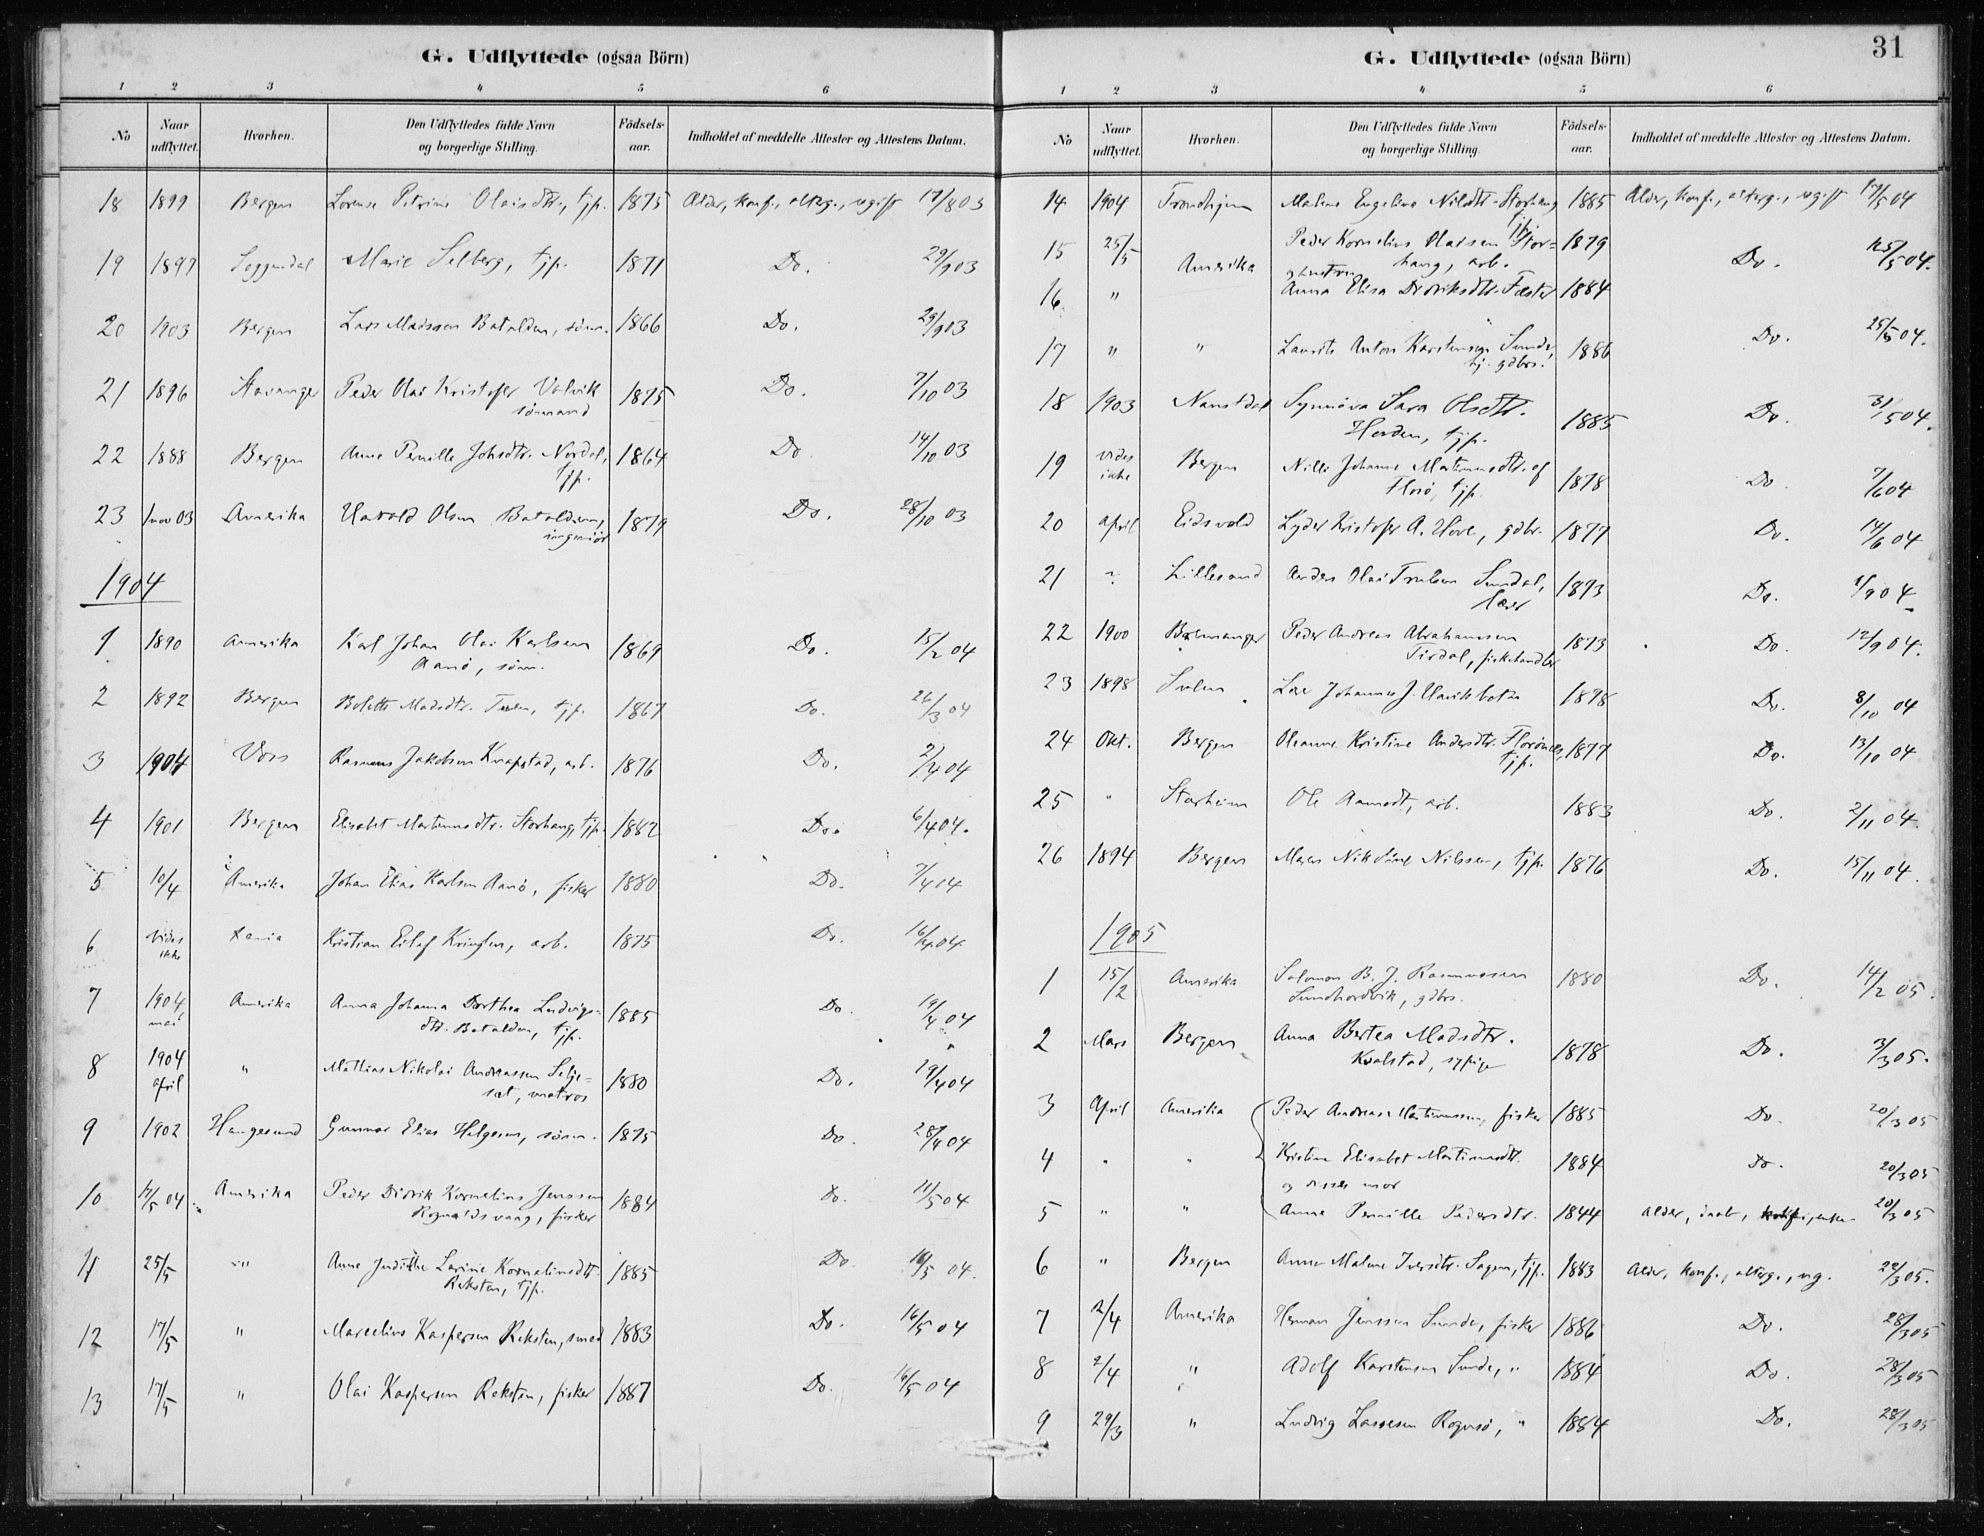 G. Udflyttede (ogsaa Börn)
1 2 3 4 5 6
No Naar udflyttet. Hvorhen. Den Udflyttedes fulde Navn og borgerlige Stilling. Födsels-aar. Indholdet af meddelte Attester og Attestens Datum.
18 1899 Bergen Lorense Petrine Olaisdtr., tjp. 1875 Alder, konf., alterg., ugift 17/8 03
19 1897 Soggendal Marie Selberg, tjp. 1871 Do. 29/9 03
20 1903 Bergen Lars Madssen Batalden, sönn. 1866 Do. 29/9 03
21 1896 Stavanger Peder Olai Kristofer Valvik 1875 Do. 7/10 03
sömand
22 1888 Bergen Anne Pernille Johsdtr. Nordal, 1864 Do 14/10 03
tjp.
23 nov 03 Amerika Harald Olsen Bataldsen, 1879 Do. 28/10 03
ingeniör
1904
1 1890 Amerika Karl Johan Olai Karlsen 1869 Do. 15/2 04
Aanö, söm.
2 1892 Bergen Bolette Madsdtr. tjp. 1867 Do. 26/3 04
3 1904 Voss Rasmus Jakobsen Knapstad, arb. 1876 Do. 2/4 04
4 1901 Bergen Elisabet Martinusdtr. Storhaug, tjp. 1882 Do. 6/4 04.
5 10/4 Amerika Johan Elias Karlsen Aanö, fisker 1880 Do. 7/4 04
6 vides ikke Kania Kristian Eilef arb. 1875 Do. 16/4 04
7 1904 mai Amerika Anna Johanna Dorthea Ludvigs- 1885 Do. 19/4 04
dtr. Batalden, tjp.
8 1904 april " Mathias Nikolai Andreassen Selje- 1880 Do. 19/4 04
set, matros
9 1902 Haugesund Gunnar Elias Helgesen, sönn. 1875 Do. 28/4 04
10 17/5 04 Amerika Peder Didrik Kornelius Jenssen 1884 Do. 11/5 04
Rognaldsvaag, fisker
11 25/5 " Anne Judithe Lavine Korneliusdtr. 1885 Do. 16/5 04.
Reksten, tjp.
12 17/5 " Marcelius Kaspersen Reksten, smed 1883 Do. 16/5 04
13 17/5 " Olai Kaspersen Reksten, fisker 1887 Do. 16/5 04
G. Udflyttede (ogsaa Börn) 31
1 2 3 4 5 6
No Naar udflyttet. Hvorhen. Den Udflyttedes fulde Navn og borgerlige Stilling. Födsels-aar. Indholdet af meddelte Attester og Attestens Datum.
14 1904 Trondhjem Malene Engeline Nilsdtr. Storhaug 1885 Alder, konf., alterg., ugift 17/5 04
tjp.
15 25/5 Amerika Peder Kornelius Olaisen Stor- 1879 Do. 25/5 04.
haug, arb.
og hustru
16 " Anna Elisa Didriksdtr. 1884
17 " " Laurits Anton Karstensen Sunde, 1886 Do. 25/5 04.
tj. gdbrs.
18 1903 Naustdal Synnöva Sara Olsdtr. 1885 Do. 31/5 04.
Horden, tjp.
19 vides ikke Bergen Nille Johanne Martinusdtr. af 1878 Do. 7/6 04
Florö, tjp.
20 april Eidsvold Lyder Kristofer A. Hove, gdbr. 1877 Do. 14/6 04
21 Lillesand Anders Olai Sundal, 1873 Do. 1/9 04
lærer
22 1900 Bremanger Peder Andreas Abrahamsen 1873 Do. 12/9 04.
fiskehandler
23 1898 Lars Johannes J. 1878 Do. 8/10 04
24 Okt. Bergen Oleanne Kristine Andersdtr. Florönes, 1877 Do. 13/10 04
tjp.
25 " Starheim Ole Aamodt, arb. 1883 Do. 2/11 04.
26 1894 Bergen Maren Nikoline Nilssen, tjp. 1876 Do. 15/11 04.
1905
1 15/2 Amerika Salomon B. J. Rasmussen 1880 Do. 14/2 05.
Sundhordvik, gdbrs.
2 Mars Bergen Anna Bertea Madsdtr. 1878 Do. 3/3 05.
Kvalstad, sypige
3 April Amerika Peder Andreas Martinussen, fisker 1885 Do. 20/3 05
4 " " Kristine Elisabet Martinusdtr. 1884 Do. 20/3 05
og disses mor
5 " " Anne Pernille Pedersdtr. 1844 alder, daab, enke 20/3 05
6 " Bergen Anne Malene Iversdtr. Sagen, tjp. 1883 Alder, konf., alterg., ug. 22/3 05.
7 2/4 Amerika Herman Jenssen Sunde, fisker 1886 Do. 28/3 05
8 2/4 " Adolf Karstensen Sunde, " 1884 Do. 28/3 05
9 29/3 " Ludvig Lassesen Rognsö, " 1884 Do. 28/3 05